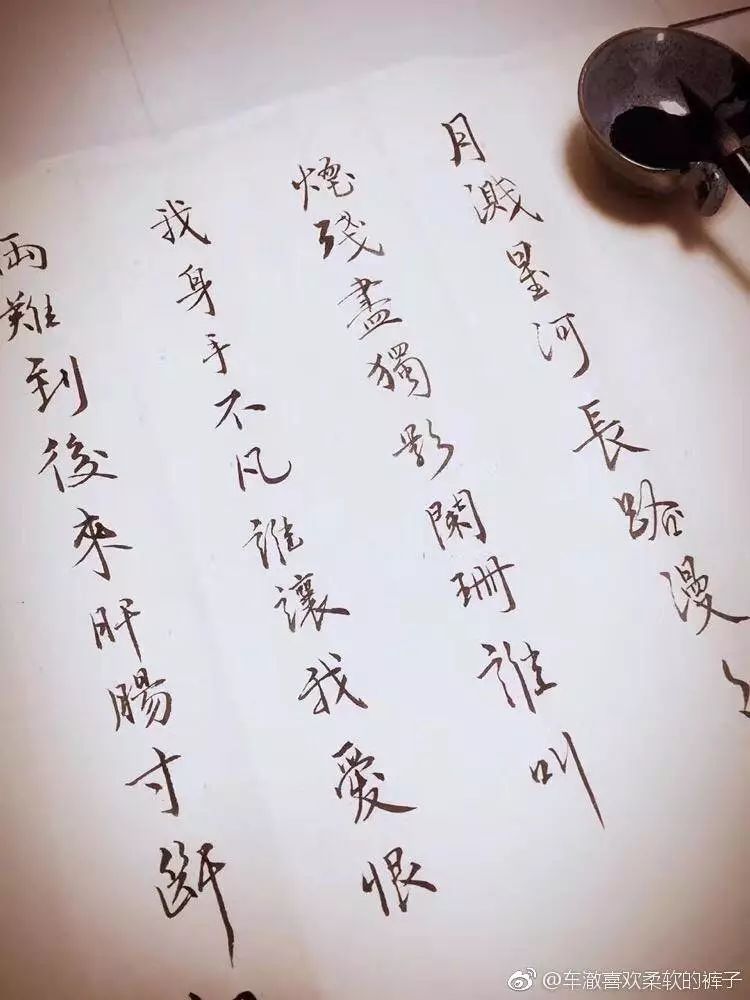 月濺星河長路漫〻
煙殘盡獨影闌珊誰叫
我身手不凡誰讓我愛恨
兩難到後來肝腸寸斷
@车澈喜欢柔软的裤子